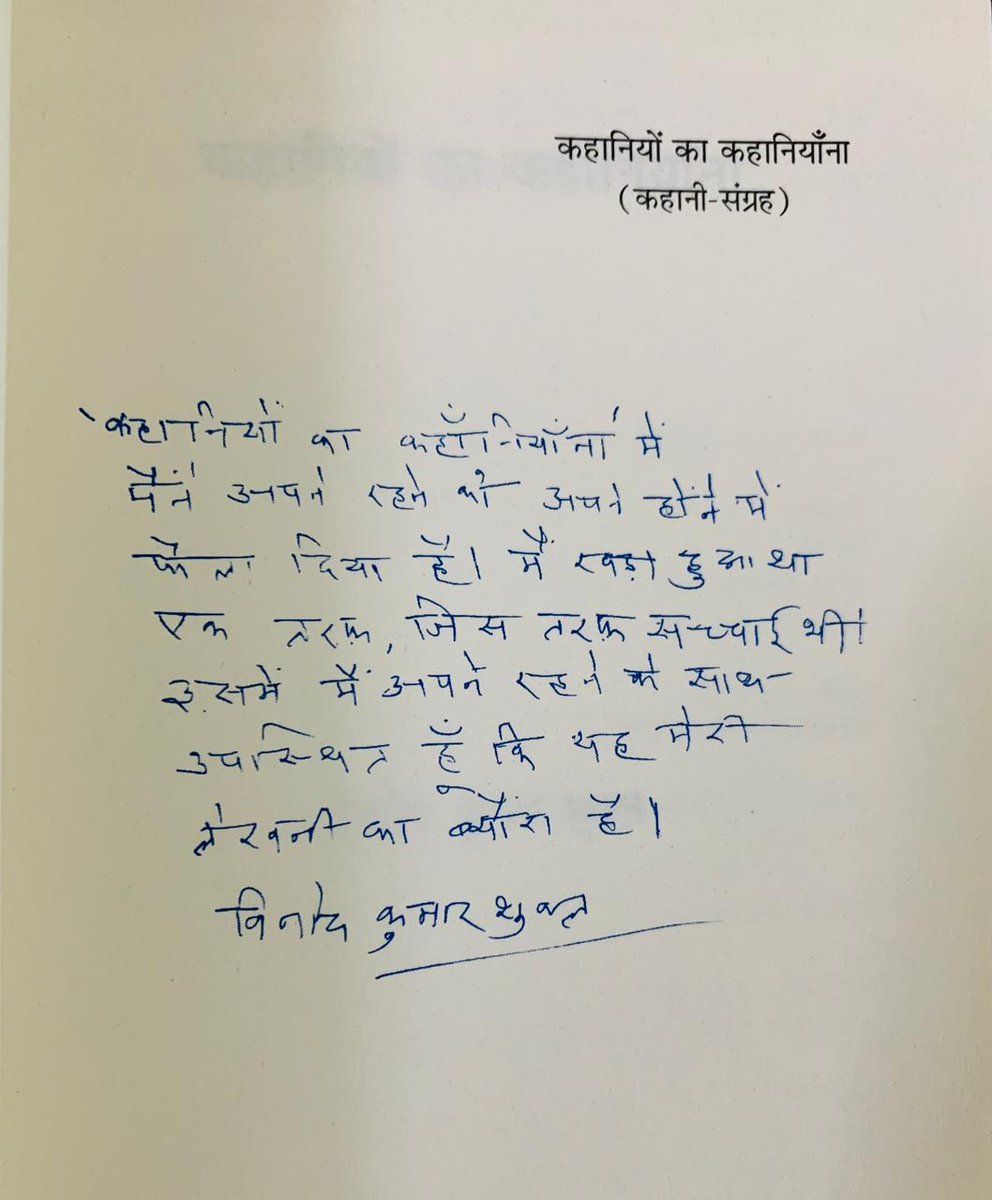 कहानियों का कहानियाँना
(कहानी-संग्रह)
'कहानियों का कहाँनियाँना' में
मैंने अपने रहने को अपने होने में
फैला दिया है। मैं खड़ा हुआ था
एक तरफ़, जिस तरफ़ सच्चाई थी।
इसमें मैं अपने रहने के साथ
उपस्थित हूँ कि यह मेरी
लेखनी का ब्यौरा है।
विनोद कुमार शुक्ल